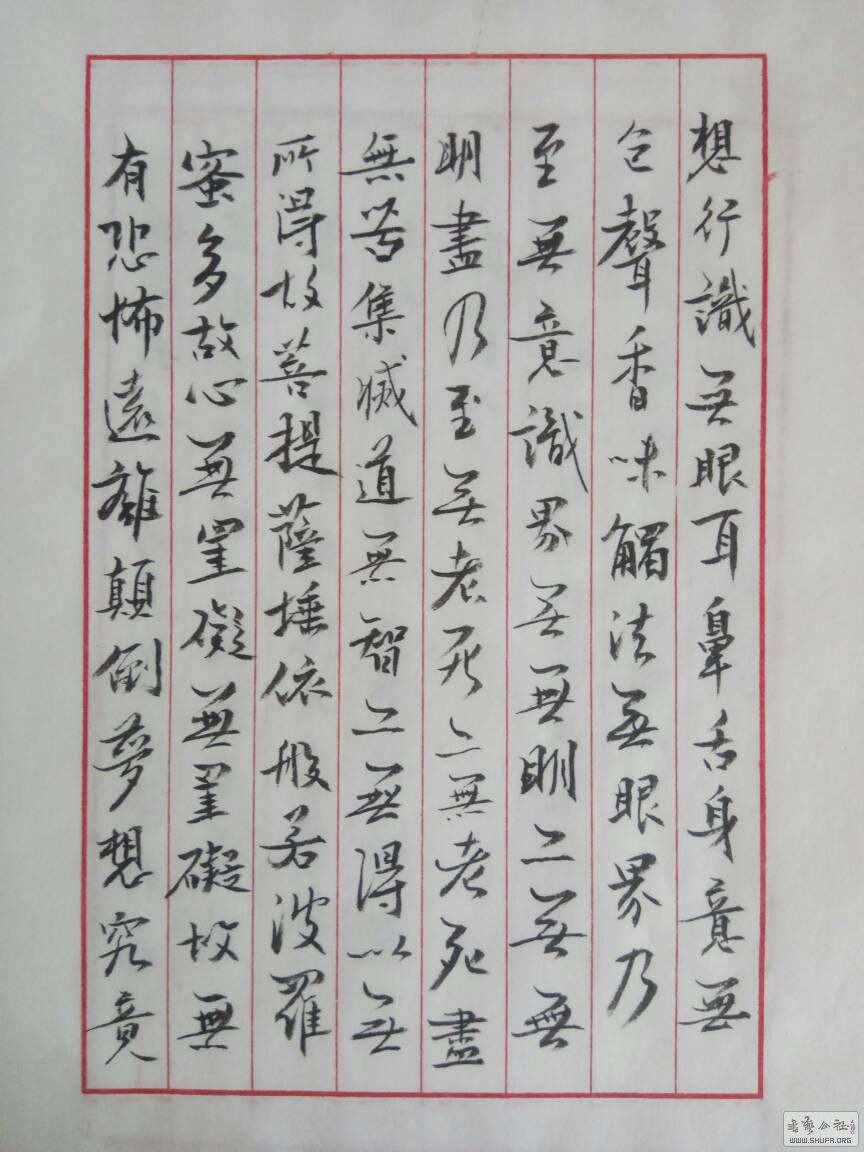 想行識無眼耳鼻舌身意無
色聲香味觸法無眼界乃
至無意識界無無明亦無無
明盡乃至無老死亦無老死盡
無苦集滅道無智亦無得以無
所得故菩提薩埵依般若波羅
蜜多故心無罣礙無罣礙故無
有恐怖遠離顛倒夢想究竟
書藝公社
WWW.SHUFA.ORG